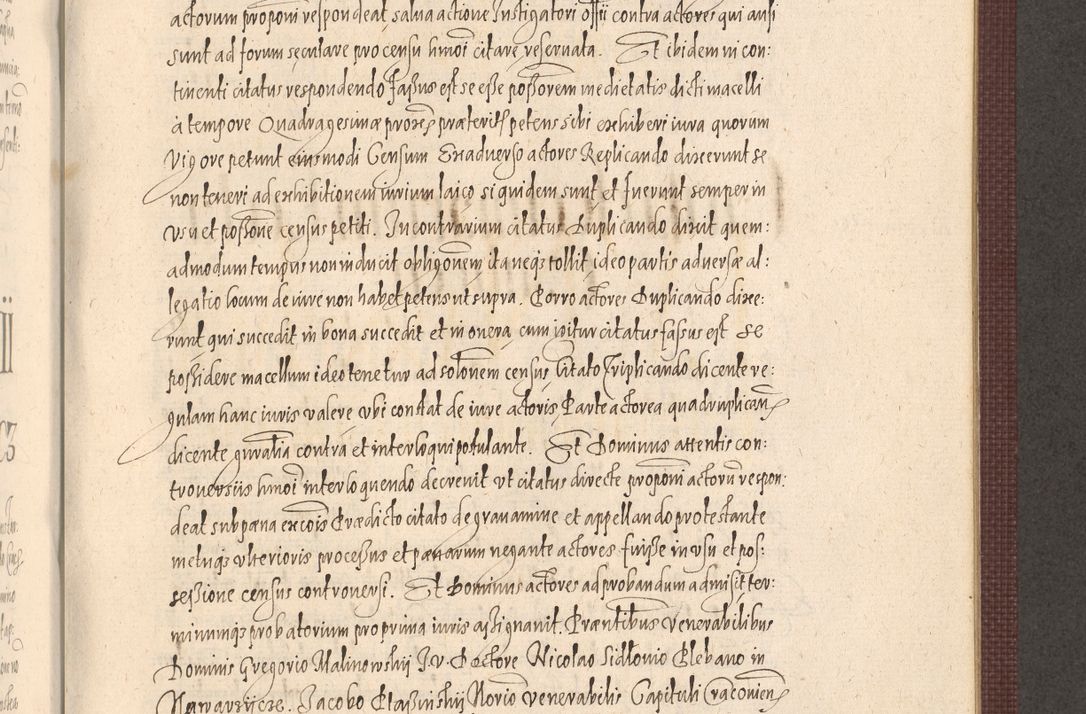 actorum proponi respondeat salva actione Instigatori offii contra actores qui ausi
sunt ad forum seculare pro censu hmoi citare reservata. Et ibidem in con:
tinenti citatus respondendo fassus est se esse possorem medietatis dicti macelli
à tempore Quadragesimæ proxe præterite petens sibi exhiberi iura quorum
vigore petunt eiusmodi Censum Exadverso actores Replicando dixerunt se
non teneri ad exhibitionem iurium laico siquidem sunt et fuerunt semper in
usu et possone census petiti. In contrarium citatus Duplicando dixit quem:
admodum tempus non inducit obligonem ita neqs tollit ideo partis adversæ al:
legatio locum de iure non habet petens ut supra. Porro actores Duplicando dixe:
runt qui succedit in bona succedit et in onera cum igitur citatus fassus est se
possidere macellum ideo tenetur ad solonem census Citato Triplicando dicente re:
gulam hanc iuris valere ubi constat de iure actoris Parte actorea quadruplican
dicente gnralia contra et interloqui postulante. Et Dominus attentis con:
troversiis hmoi interloquendo decrevit ut citatus directe proponi actoru respon:
deat sub pæna excois Prædicto citato de gravamine et appellando protestante
metuqs ulterioris processus et pænarum negante actores fuisse in usu et pos:
sessione census controversi. Et Dominus actores ad probandum admisit ter:
minumqs probatorium pro prima iuris assignavit. Præntibus Venerabilibus
Dominis Gregorio Malinowskij J.v. Doctore Nicolao Sidlovio Plebano in
Jacobo Notario Venerabilis Capituli Cracovien